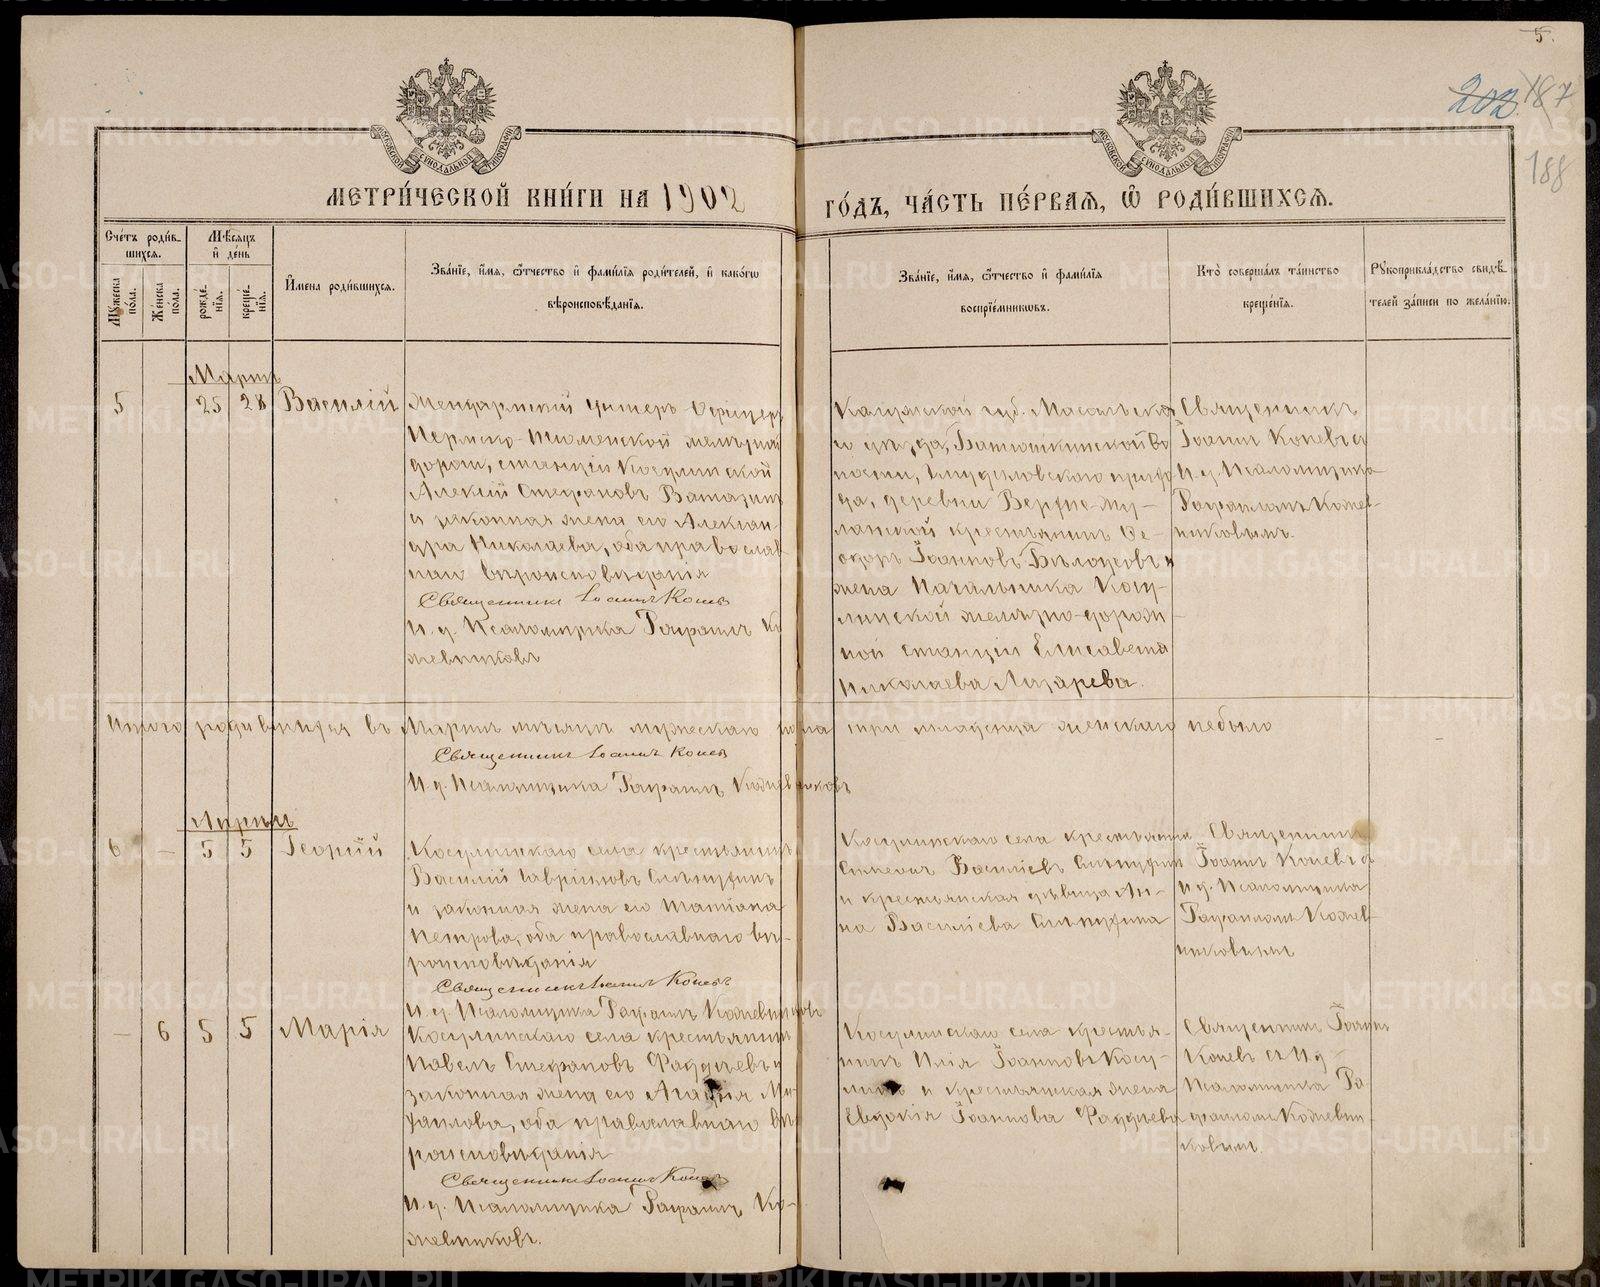 5.
202 187
188
МЕТРИ́ЧЕСКОЙ КНИ́ГИ НА 1902 ГО́ДЪ, ЧА́СТЬ ПЕ́РВАѦ, Ѡ РОДИ́ВШИХСѦ.
Сче́тъ роди́вшихся.
Мѣ́сяцъ и де́нь
Му́жеска по́ла.
Же́нска по́ла.
рожде́нїя.
креще́нїя.
И҆мена роди́вшихся.
Зва́нїе, и҆́мя, ѻ҆́тчество и҆ фами́лїя роди́телей, и҆ како́гѡ вѣроисповѣ́данїя.
Зва́нїе, и҆́мя, ѻ҆́тчество и҆ фами́лїя воспрїе́мниковъ.
Кто̀ соверша́лъ та́инство креще́нїя.
Рꙋкоприкла́дство свидѣ́телей за́писи по жела́нїю.
Мартъ
5 25 28 Василій
Жандармскій Унтеръ Офицеръ
Пермско-Тюменской желѣзной
дороги, станціи Косулинской
Алексій Стефановъ
и законная жена его Алексан-
дра Николаева, оба православ-
наго вѣроисповѣданія
Священникъ Іоаннъ Коневъ
И. д. Псаломщика Рафаилъ Ко
жевниковъ
Калужской губ. Масальска
го уѣзда,
деревни
крестьянинъ Ѳе-
доръ Іоанновъ и
жена Начальника Косу-
линской желѣзно-дорож-
ной станціи Елисавета
Николаева Лазарева.
Священникъ
Іоаннъ Коневъ съ
И. д. Псаломщика
Рафаиломъ Кожев-
никовымъ.
Итого родившихся въ Мартѣ мѣсяцѣ мужескаго пола три младенца женскаго небыло
Священникъ Іоаннъ Коневъ
И. д. Псаломщика Рафаилъ Кожевниковъ
Апрѣль
6 — 5 5 Георгій
Косулинскаго села крестьянинъ
Василій Гавріиловъ
и законная жена его Татіана
Петрова, оба православнаго вѣ-
роисповѣданія
Священникъ Іоаннъ Коневъ
И. д. Псаломщика Рафаилъ Кожевниковъ
Косулинскаго села крестьянинъ
Василіевъ
и крестьянская дѣвица Ан-
на Василіева
Священникъ
Іоаннъ Коневъ съ
И. д. Псаломщика
Рафаиломъ Кожев-
никовымъ
— 6 5 5 Марія
Косулинскаго села крестьянинъ
Павелъ Стефановъ Фаддѣевъ и
законная жена его Агафія Ми-
хаилова, оба православнаго вѣ-
роисповѣданія
Священникъ Іоаннъ Коневъ
И. д. Псаломщика Рафаилъ Ко-
жевниковъ.
Косулинскаго села крестья-
нинъ Илія Іоанновъ Косу-
и крестьянская жена
Евдокія Іоаннова Фаддѣева
Священникъ Іоаннъ
Коневъ съ И. д.
Псаломщика Ра-
фаиломъ Кожевни-
ковымъ.